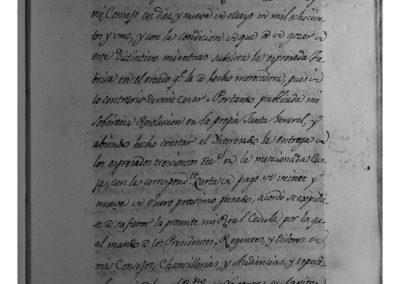 mi Consejo en diez, y nueve de Mayo de mil ochocien
tos y uno, y con la condicion de que à de gozar de
este distintivo mientras subsista la expresada fa
brica en el estado q.e la à hecho merecedora, pues de
lo contrario deverá cesar. Portanto publicada mi
Soberana Resolucion en la propia Junta General, y
abiendo hecho constar el Interesado la entrega de
los expresados trescientos rea.s en la mencionada Ca
ja, con la correspond.te Carta de pago de veinte y
nueve de Enero proximo pasado, acordó se expidie
se à su favor la presente mi Real Cedula; por la qu
al mando à los Presidentes, Regentes, y Oidores de
mis Consejos, Chancillerias, y Audiencias, y especi